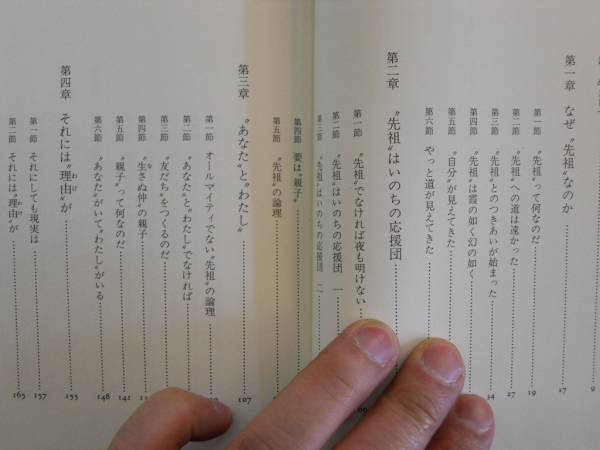 第一章　なぜ〝先祖〟なのか 9
第一節　〝先祖〟って何なのだ 19
第二節　〝先祖〟への道は遠かった 27
第三節　〝先祖〟とのつきあいが始まった
第四節　〝先祖〟は霞の如く幻の如く
第五節　〝自分〟が見えてきた
第六節　やっと道が見えてきた
第二章　〝先祖〟はいのちの応援団
第一節　〝先祖〟でなければ夜も明けない
第二節　〝先祖〟はいのちの応援団　一
第三節　〝先祖〟はいのちの応援団　二
第四節　要は〝親子〟
第五節　〝先祖〟の論理
第三章　〝あなた〟と〝わたし〟 107
第一節　オールマイティでない〝先祖〟の論理
第二節　〝あなた〟と〝わたし〟でなければ
第三節　〝友だち〟をつくるのだ
第四節　〝生さぬ仲〟の親子
第五節　〝親子〟って何なのだ 141
第六節　〝あなた〟がいて〝わたし〟がいる 148
第四章　それには〝理由〟が 155
第一節　それにしても現実は 157
第二節　それには〝理由〟が 165